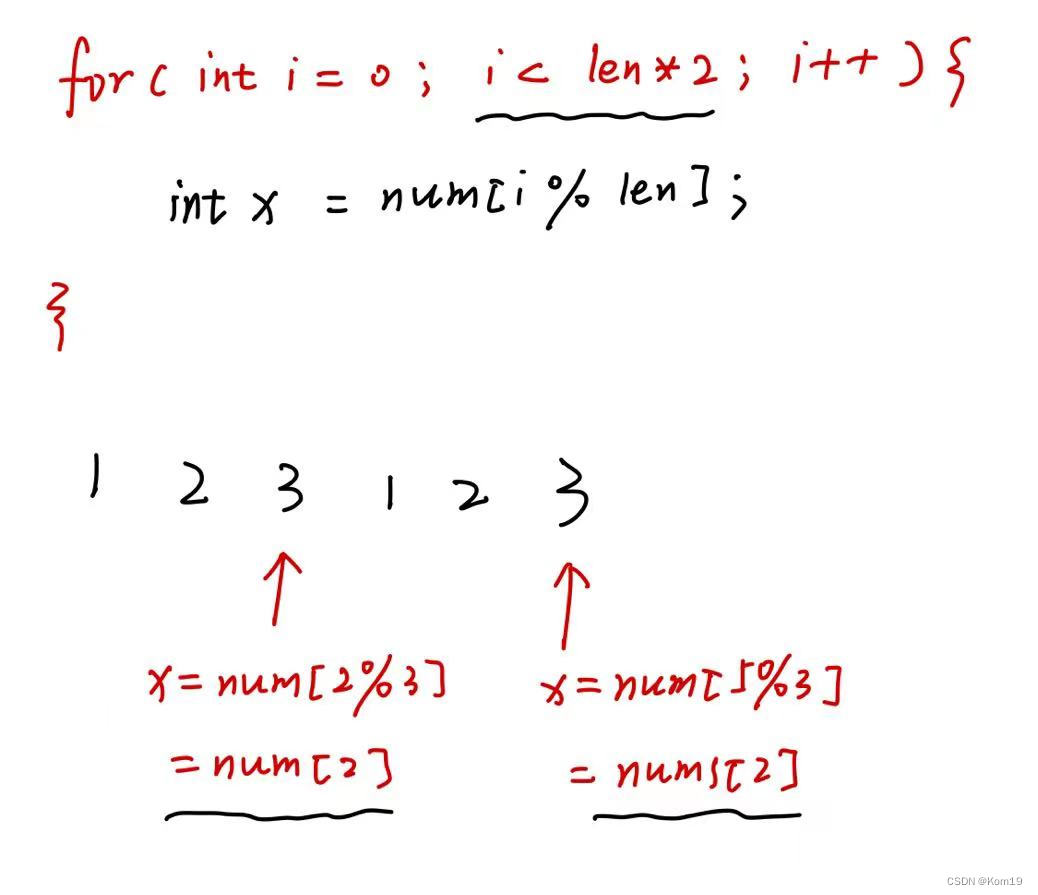 for( int i = 0; i < len*2; i++ ){
int x = num[i % len];
}
1 2 3 1 2 3
x=num[2%3] x=num[5%3]
=num[2] = nums[2]
CSDN @Kom19